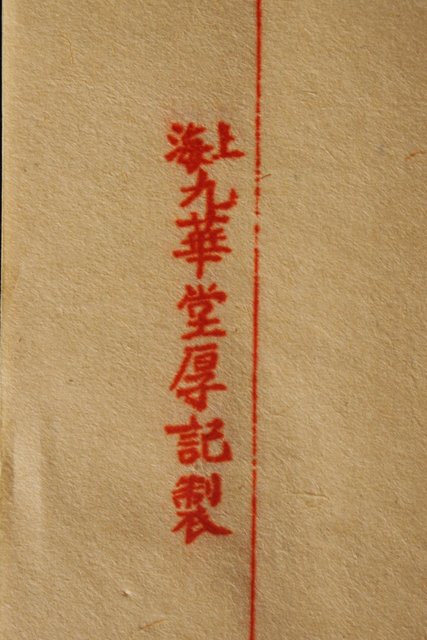 上海九華堂厚記製